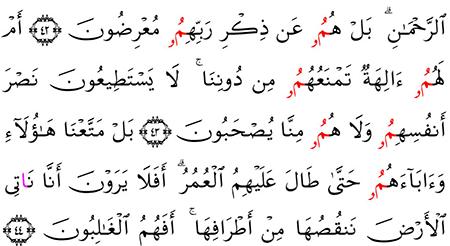 ٱلرَّحۡمَٰنِۚ بَلۡ هُمُۥ عَن ذِكۡرِ رَبِّهِمُۥ مُعۡرِضُونَ ۝٤٢ أَمۡ
لَهُمُۥ ءَالِهَةٞ تَمۡنَعُهُمُۥ مِن دُونِنَاۚ لَا يَسۡتَطِيعُونَ نَصۡرَ
أَنفُسِهِمُۥ وَلَا هُمُۥ مِنَّا يُصۡحَبُونَ ۝٤٣ بَلۡ مَتَّعۡنَا هَٰٓؤُلَآءِ
وَءَابَآءَهُمُۥ حَتَّىٰ طَالَ عَلَيۡهِمُ ٱلۡعُمُرُۗ أَفَلَا يَرَوۡنَ أَنَّا نَاتِي
ٱلۡأَرۡضَ نَنقُصُهَا مِنۡ أَطۡرَافِهَاۚ أَفَهُمُ ٱلۡغَٰلِبُونَ ۝٤٤